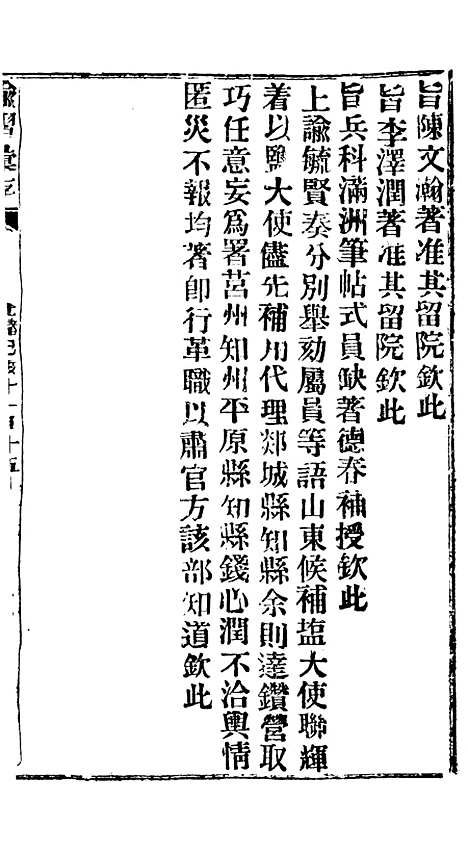 旨陳文瀚著准其留院欽此
旨李澤潤著准其留院欽此
旨兵科滿洲筆帖式員缺著德春補授欽此
上諭毓賢奏分別舉劾屬員等語山東候補塩大使聯輝
着以鹽大使儘先補用代理郯城縣知縣余則達鑽營取
巧任意妄爲署莒州知州平原縣知縣錢心潤不洽輿情
匿災不報均著卽行革職以肅官方該部知道欽此
諭摺彙存
光緒己亥十一月十五日